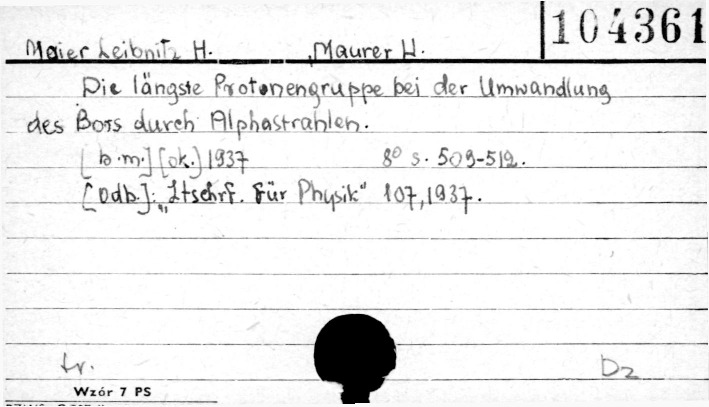 104361
Maier Leibnitz H. , Maurer W.
Die längste Protonengruppe bei der Umwandlung
des Bors durch Alphastrahlen.
[b.m.] [ok.] 1937 8° s. 509-512.
[Odb.]: „Ztschrf. für Physik" 107, 1937.
tr. Dz
Wzór 7 PS